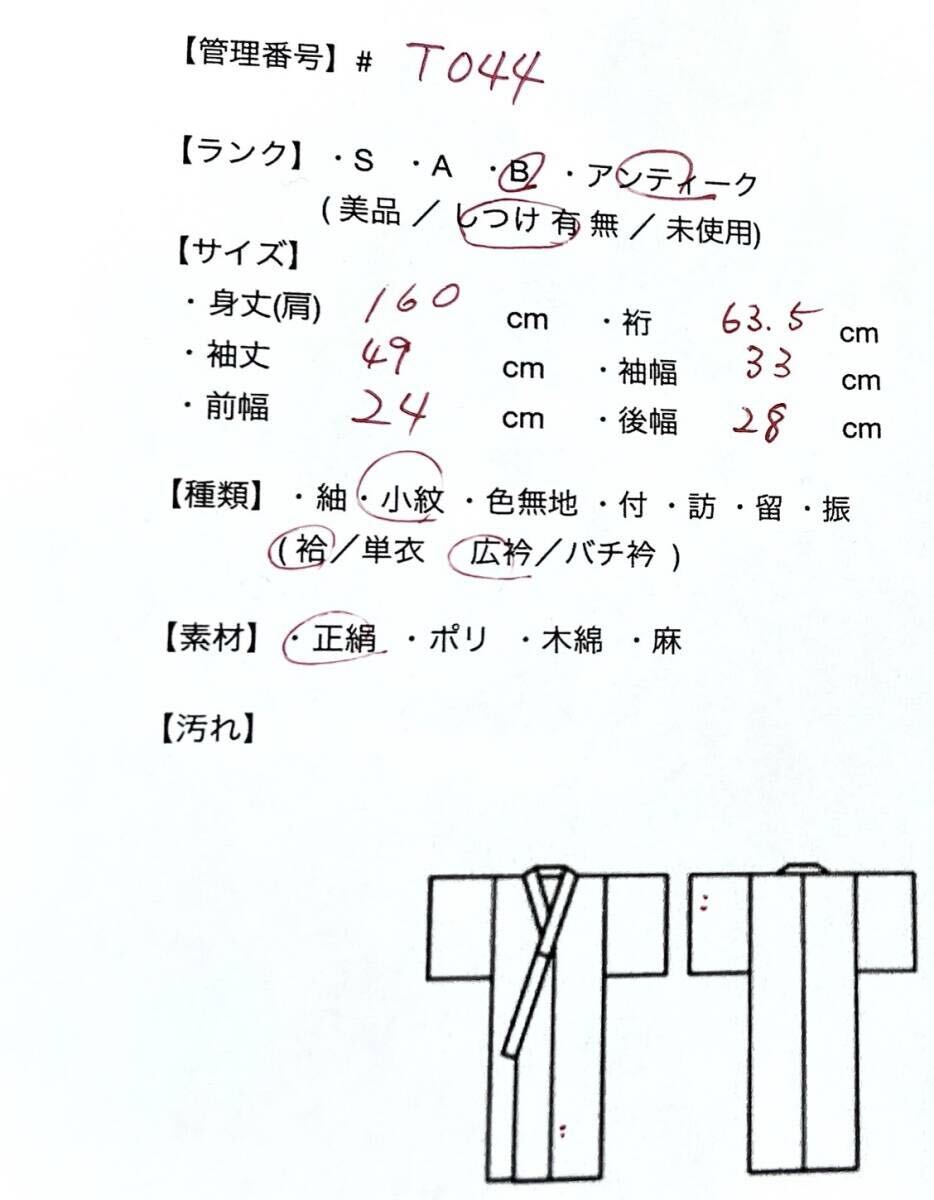 【管理番号】# T044
【ランク】 ・S ・A ・B ・アンティーク
( 美品 / しつけ 有 無 / 未使用)
【サイズ】
・身丈(肩) 160 cm ・裄 63.5 cm
・袖丈 49 cm ・袖幅 33 cm
・前幅 24 cm ・後幅 28 cm
【種類】 ・紬 ・小紋 ・色無地 ・付 ・訪 ・留 ・振
( 袷/単衣 広衿/バチ衿 )
【素材】 ・正絹 ・ポリ ・木綿 ・麻
【汚れ】